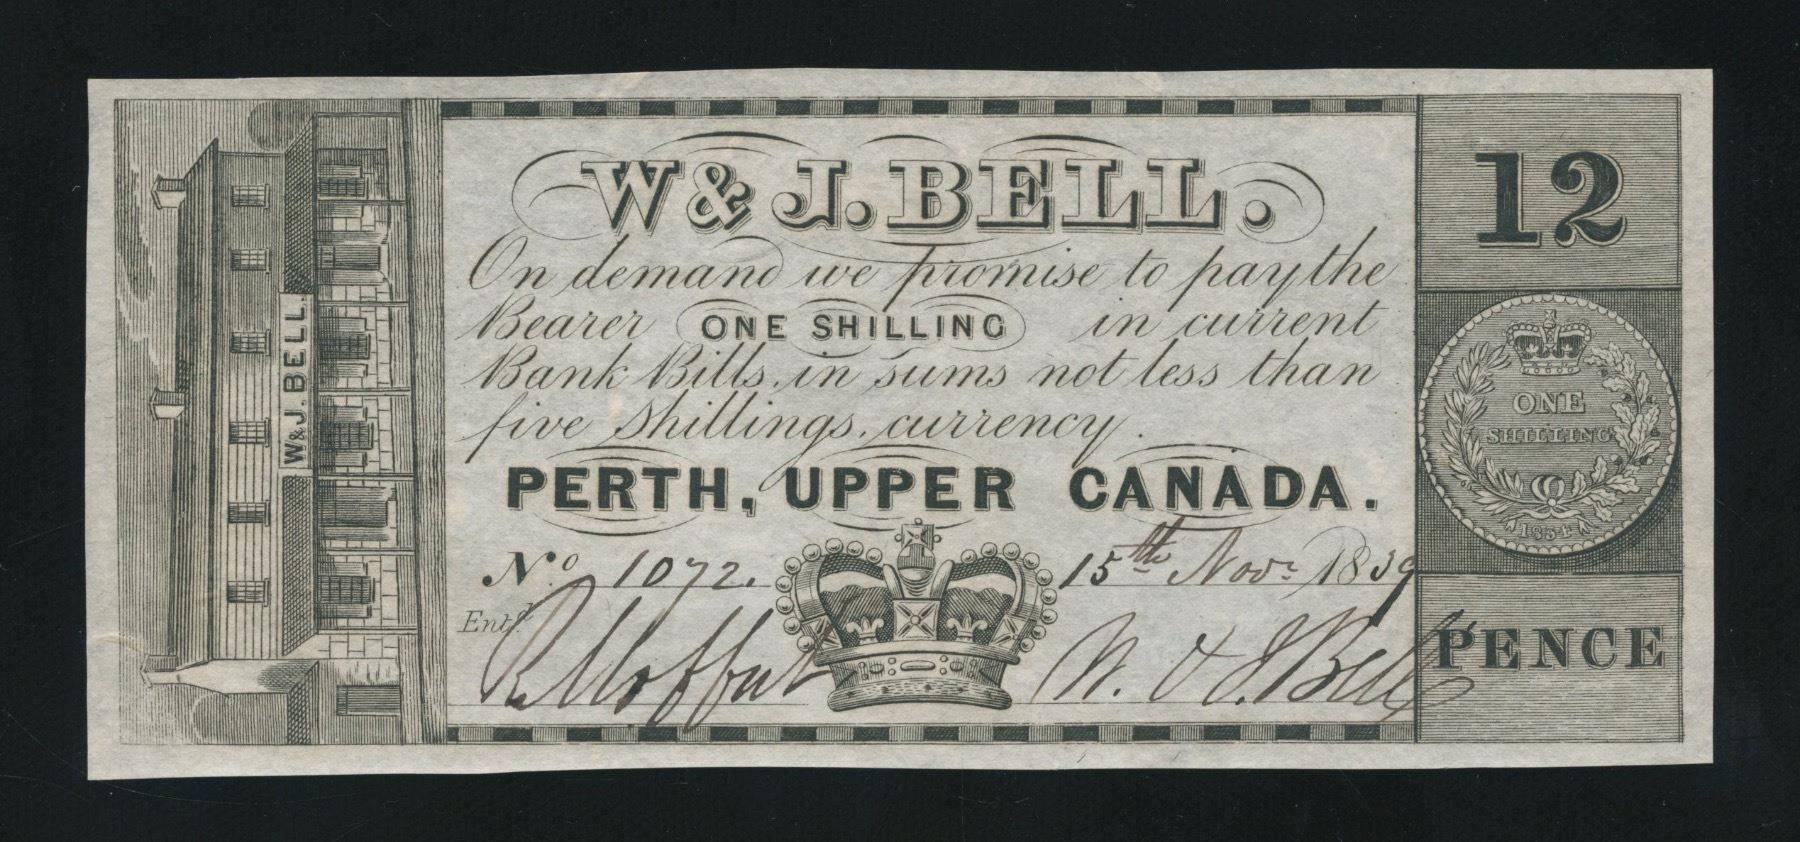 W & J. BELL.
W & J. BELL.
On demand we promise to pay the
Bearer ONE SHILLING in current
Bank Bills, in sums not less than
five shillings, currency.
PERTH, UPPER CANADA.
No. 1072. 15th Novr. 1839
Entd. Moffat W. & J. Bell
12
ONE
SHILLING
1834
PENCE